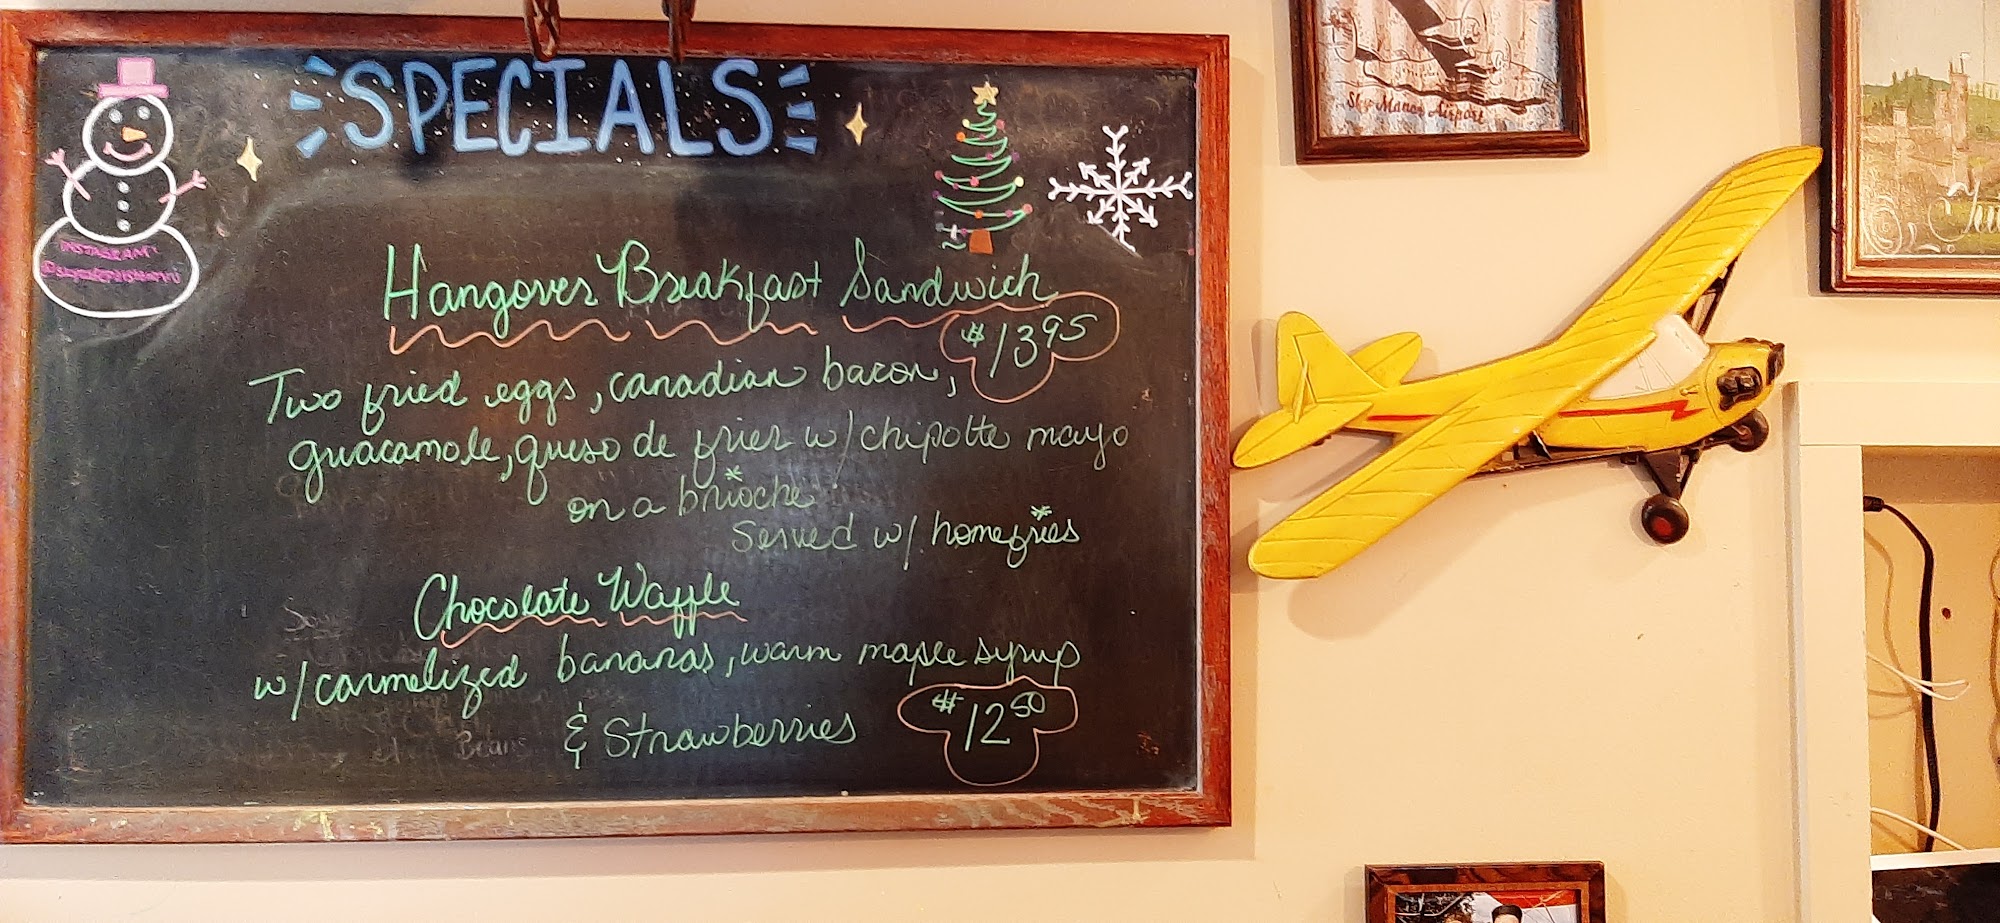 SPECIALS
INSTAGRAM:
Hangover Breakfast Sandwich
$13.95
Two fried eggs, canadian bacon,
guacamole, queso de frier w/ chipotte mayo
on a brioche
Served w/ homefries
Chocolate Waffle
w/ carmelized bananas, warm maple syrup
& Strawberries
$12.50
Beans
Sky Manor Airport